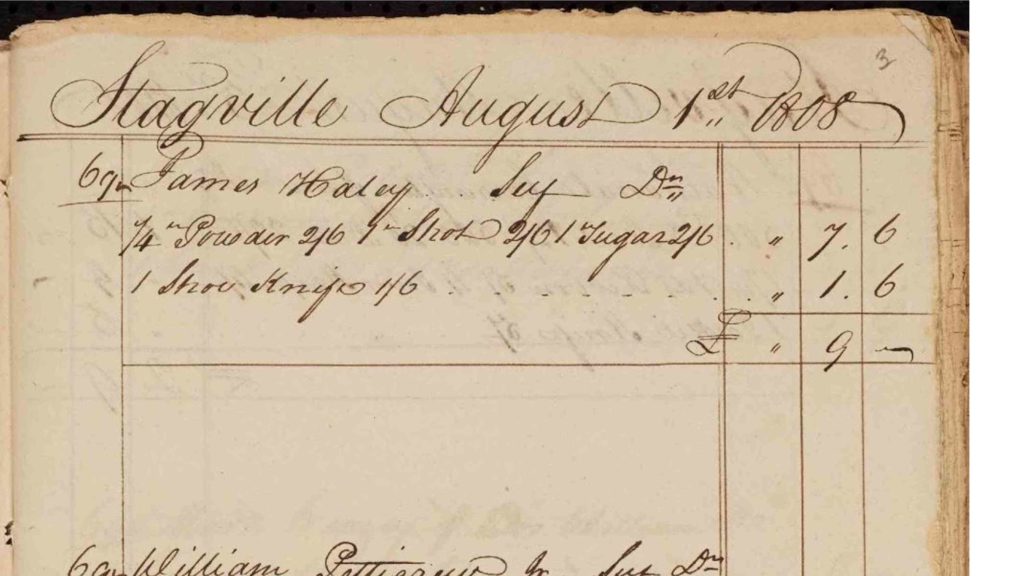 3
Stagville August 1st 1808
James Haley Dr
1/4 " Powder 2/6 1 " Shot 2/6 1 Sugar 2/6 . " 7. 6
1 Shoe Knife 1/6 " 1. 6
£ " 9 —
William Jr Dr